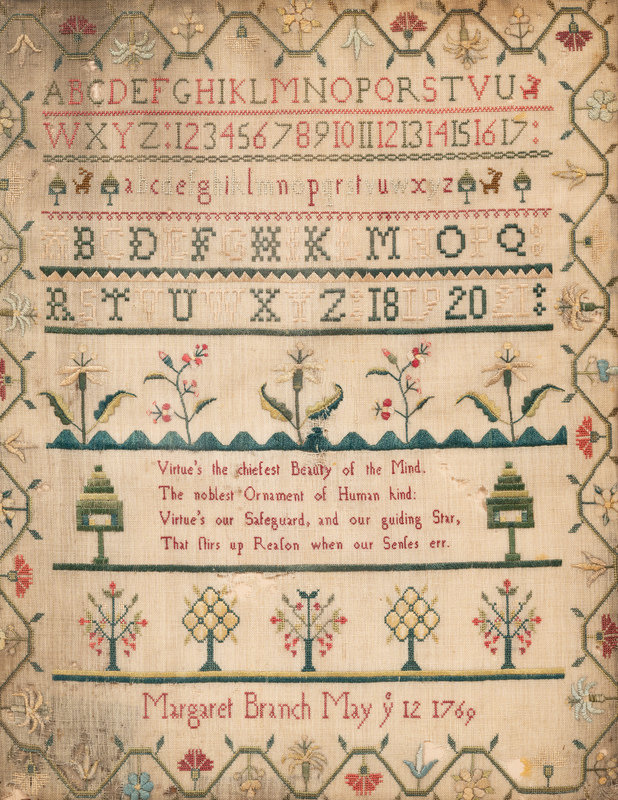 ABCDEFGHIKLMNOPQRSTVU
WXYZ:1234567891011121314151617:
abcdefghiklmnopqrstuvwxyz
ABCDEFGHIKLMNOPQ:
RSTVUWXYZ:18192021:
Virtue's the chiefest Beauty of the Mind.
The noblest Ornament of Human kind:
Virtue's our Safeguard, and our guiding Star,
That ſtirs up Reaſon when our Senſes err.
Margaret Branch May yͤ 12 1769